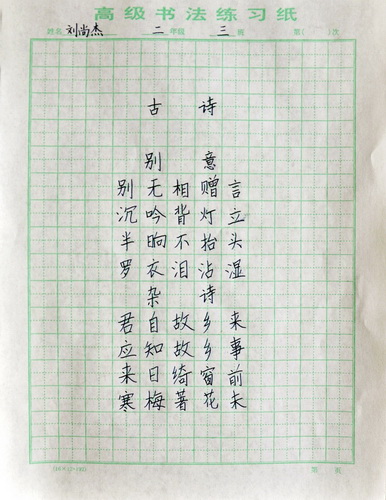 高级书法练习纸
姓名 刘尚杰 二 年级 三 班 第( )次
古诗
别意
别无相赠言
沉吟背灯立
半晌不抬头
罗衣泪沾湿
杂诗
君自故乡来
应知故乡事
来日绮窗前
寒梅著花未
第 页